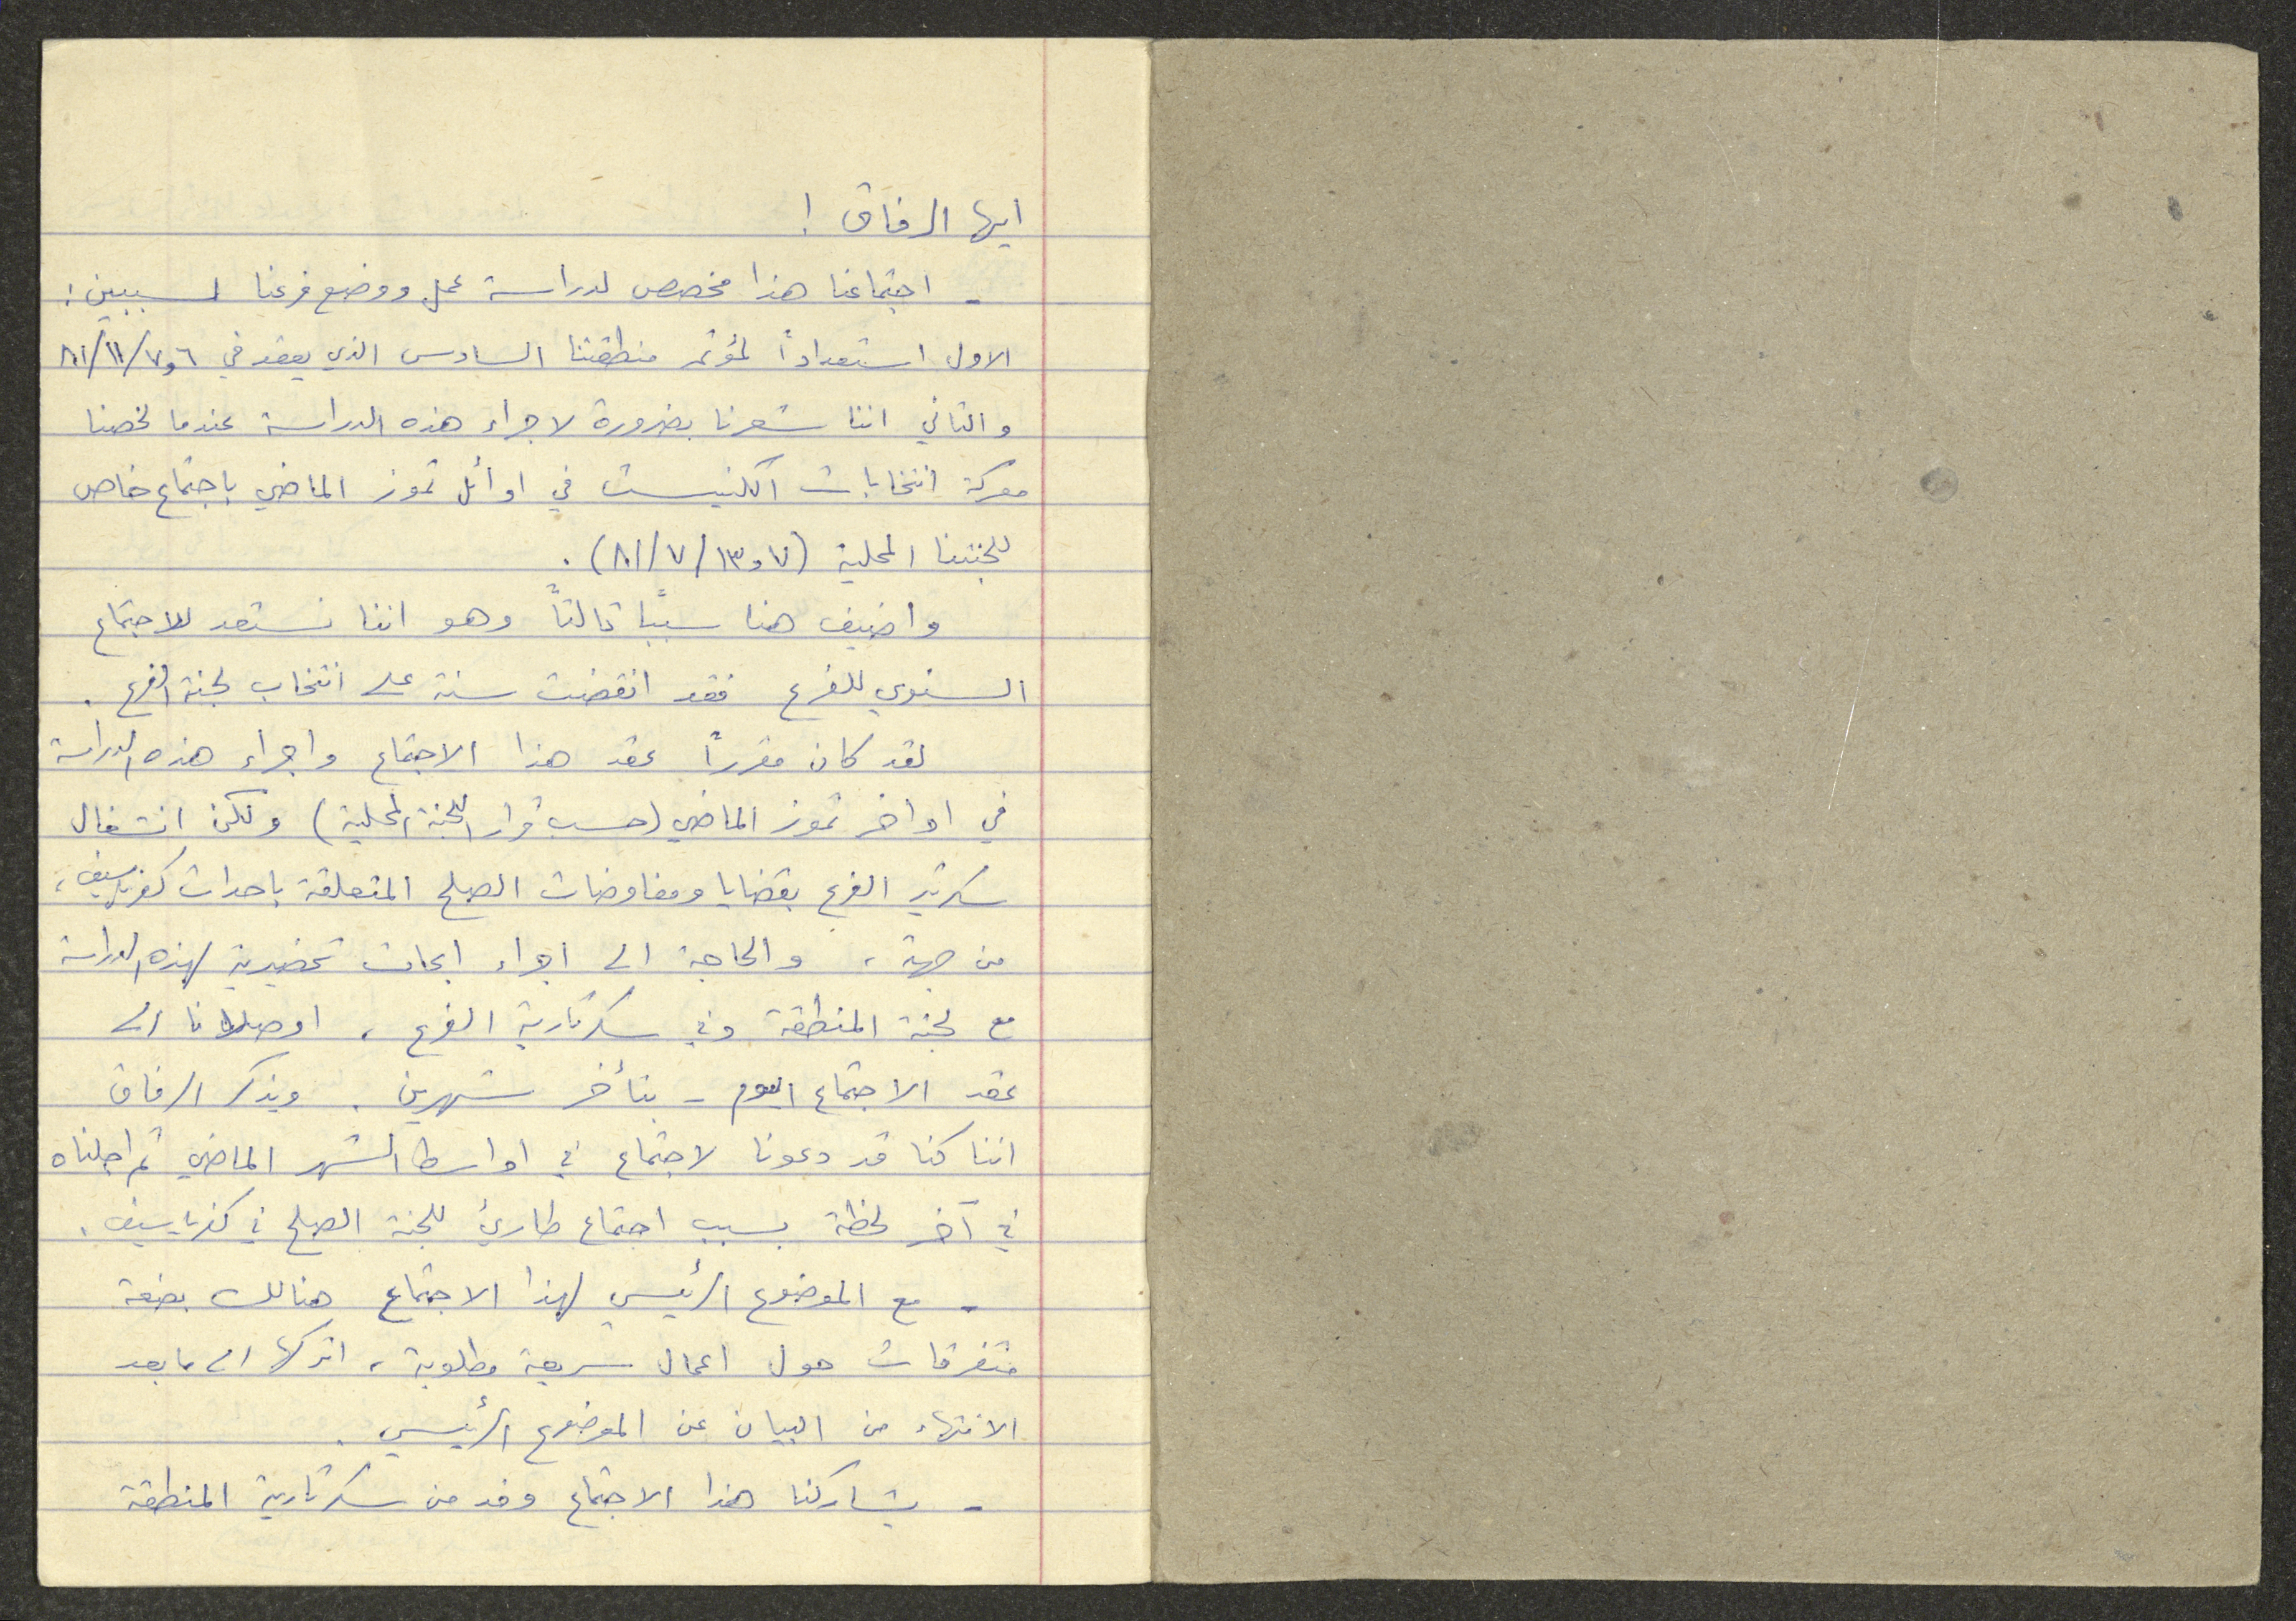 ايها الرفاق !
- اجتماعنا هذا مخصص لدراسة عمل ووضع فرعنا لسببين :
الاول استعداداً لمؤتمر منطقتنا السادس الذي يعقد في ٦ و٧/١١/٨١
والثاني اننا شعرنا بضرورة لاجراء هذه الدراسة عندما لخصنا
معركة انتخابات الكنيست في اوائل تموز الماضي باجتماع خاص
للجنتنا المحلية (٧ و١٣/٧/٨١) .
واضيف هنا سبباً ثالثاً وهو اننا نستعد للاجتماع
السنوي للفرع فقد انقضت سنة على انتخاب لجنة الفرع .
لقد كان مقرراً عقد هذا الاجتماع واجراء هذه الدراسة
في اواخر تموز الماضي (حسب قرار اللجنة المحلية) ولكن انشغال
سكرتير الفرع بقضايا ومفاوضات الصلح المتعلقة باحداث كفرياسيف ،
من جهة ، والحاجة الى اجراء ابحاث تحضيرية لهذه الدراسة
مع لجنة المنطقة وفي سكرتارية الفرع ، اوصلانا الى
عقد الاجتماع اليوم - بتأخر شهرين . ويذكر الرفاق
اننا كنا قد دعونا لاجتماع في اواسط الشهر الماضي ثم اجلناه
في آخر لحظة بسبب اجتماع طارئ للجنة الصلح في كفرياسيف .
- مع الموضوع الرئيسي لهذا الاجتماع هنالك بضعة
متفرقات حول اعمال سريعة مطلوبة ، اتركها الى ما بعد
الانتهاء من البيان عن الموضوع الرئيسي .
- يشاركنا هذا الاجتماع وفد من سكرتارية المنطقة